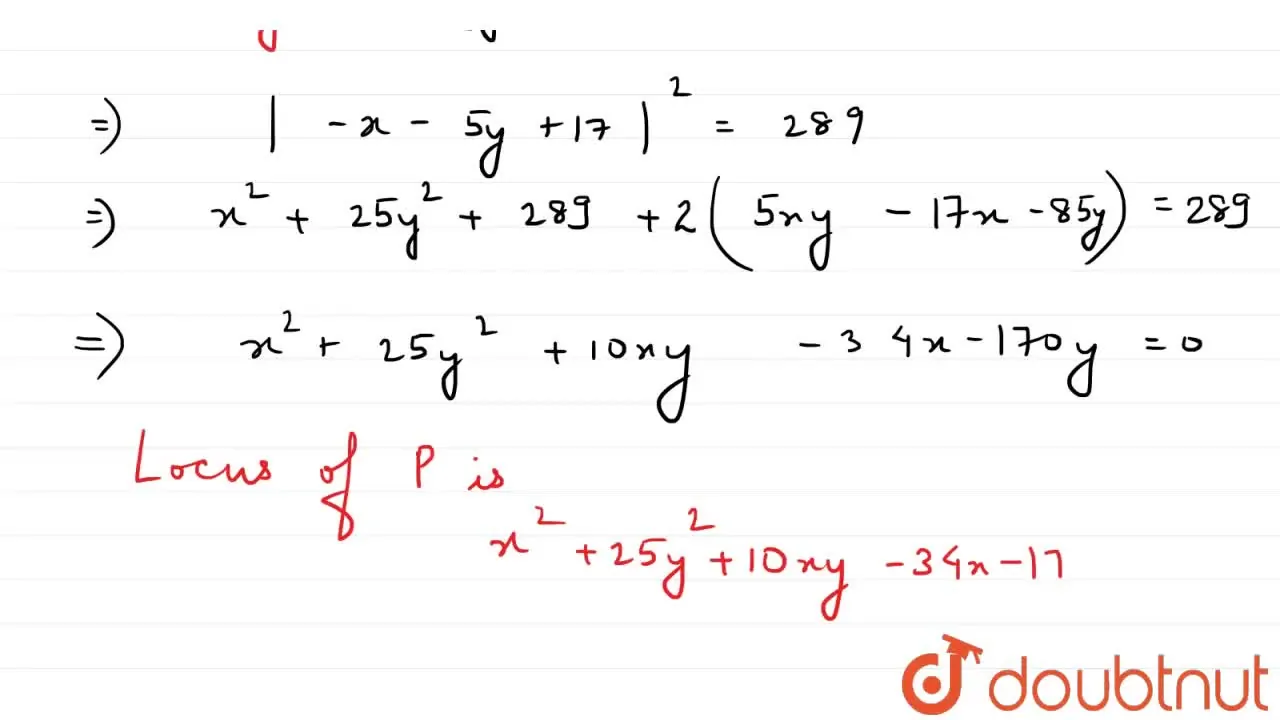 =) | -x - 5y +17 |² = 289
=) x² + 25y² + 289 +2 ( 5xy - 17x -85y) = 289
=) x² + 25y² +10xy -34x-170y = 0
Locus of P is
x² +25y² +10xy -34x-17
doubtnut